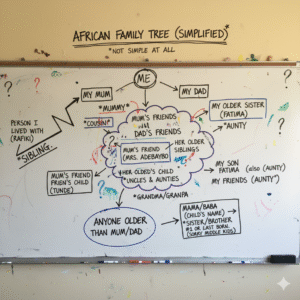 AFRICAN FAMILY TREE (SIMPLIFIED)*
*NOT SIMPLE AT ALL
ME
MY MUM
MY DAD
*MUMMY*
*COUSIN!*
MUM'S FRIENDS
DAD'S FRIENDS
MY OLDER SISTER
(FATIMA)
*AUNTY
PERSON I
LIVED WITH
(RAFIKI)
*SIBLING
MUM'S FRIEND
(MRS. ADEBAYBO)
HER OLDER
SIBLINGS
MUM'S FRIEND
FRIEN'S CHILD
(TUNDE)
HER OLDED'S CHILD
*UNCLES & AUNTIES
MY SON
FATIMA (also (AUNTY)
MY FRIENDS (AUNTY")
*GRANDMA/GRANPA
ANYONE OLDER
THAN MUM/DAD
MAMA/BABA
(CHILD'S NAME) →
*SISTER/BROTHER
#1 OR LAST BORN.
(SORRY MIDDLE KIDS)